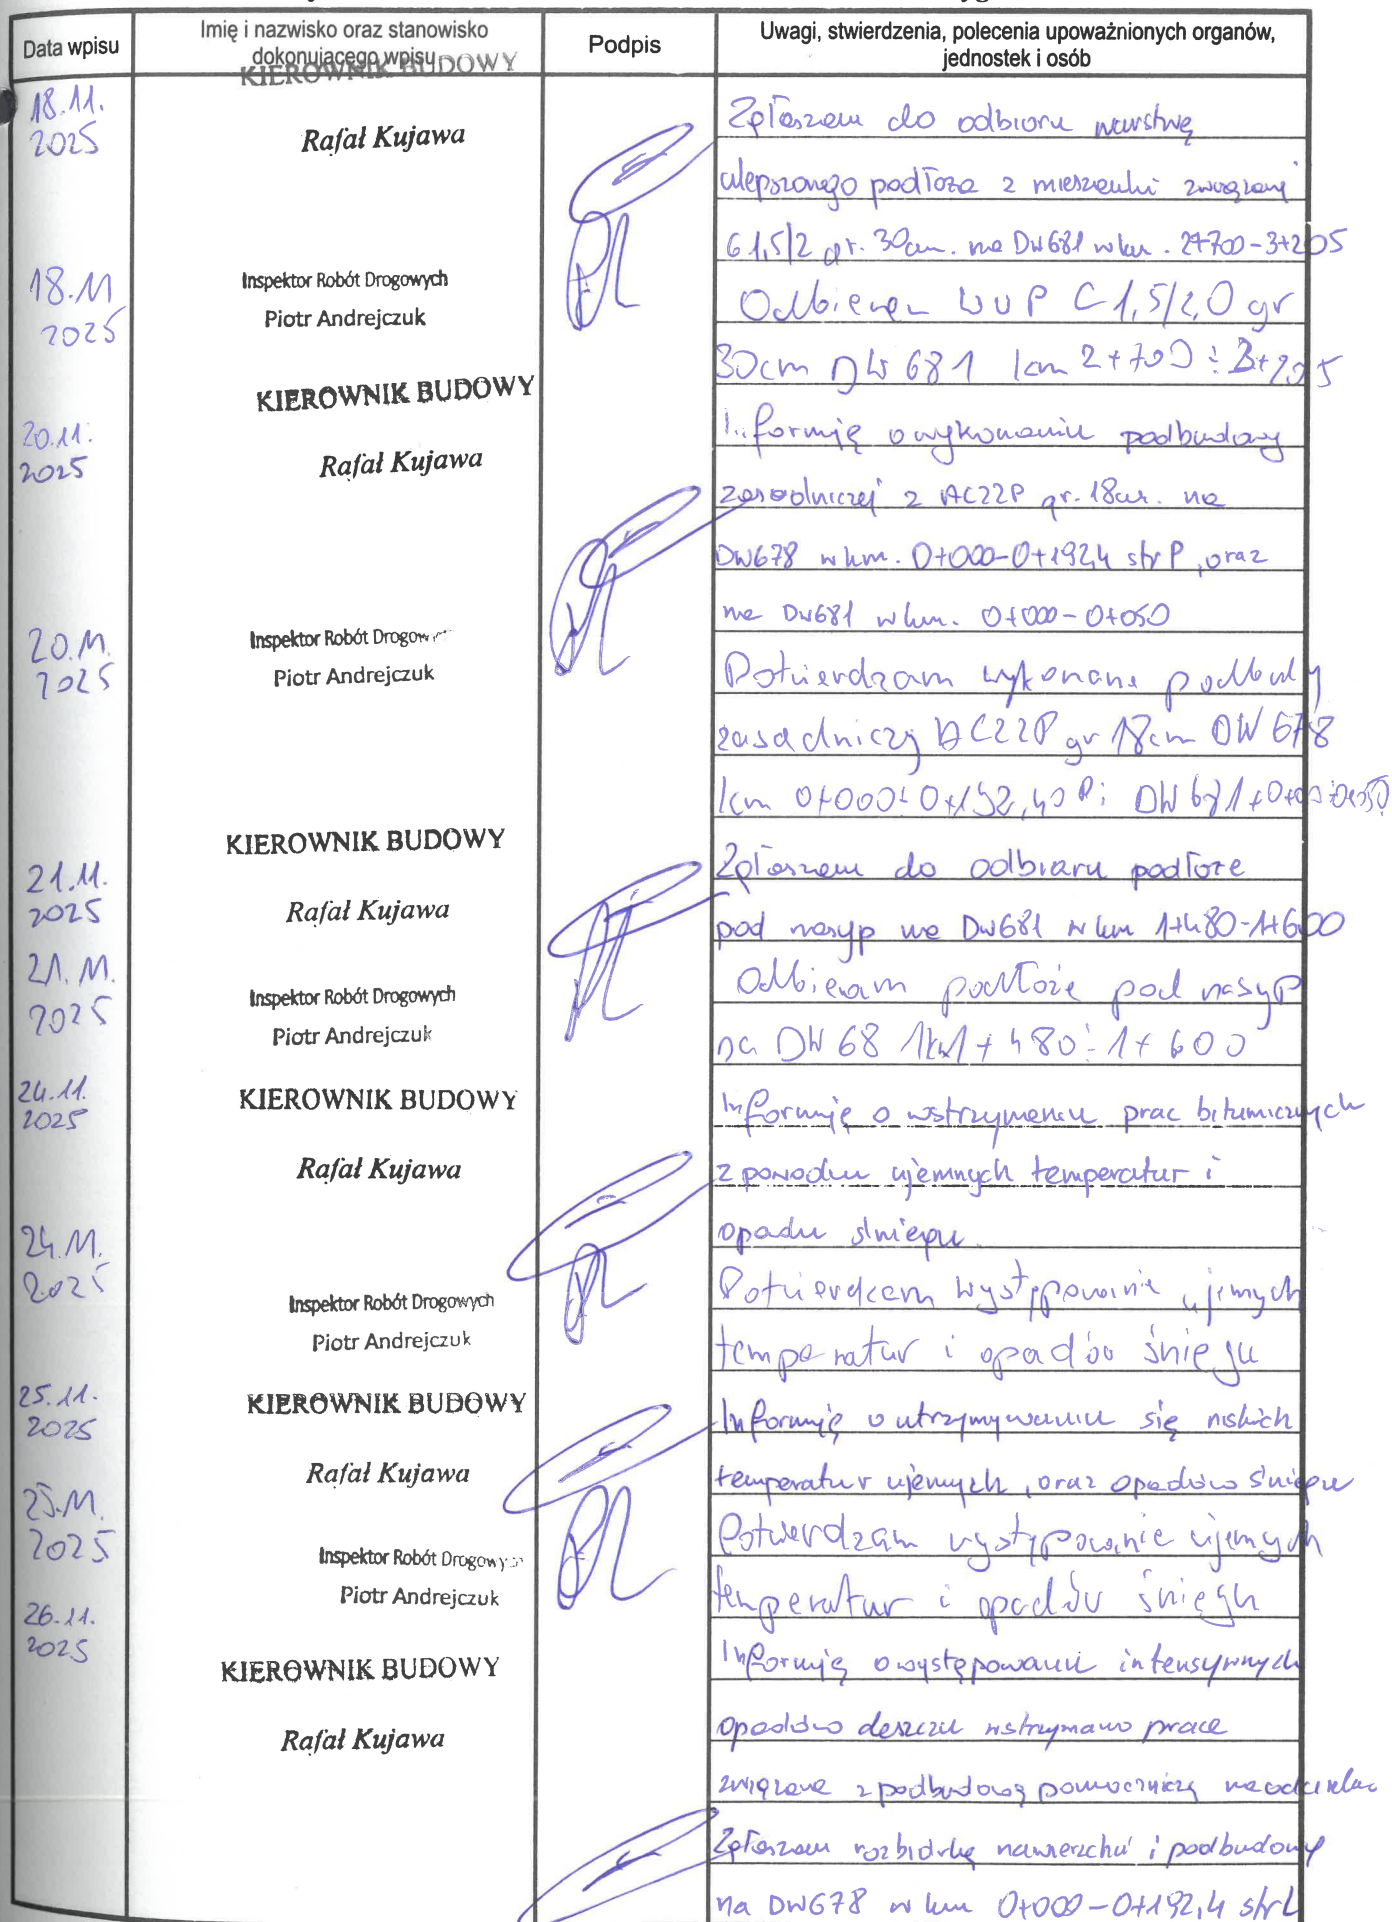 Data wpisu
Imię i nazwisko oraz stanowisko
dokonującego wpisu
Podpis
Uwagi, stwierdzenia, polecenia upoważnionych organów,
jednostek i osób
18.11.
2025
KIEROWNIK BUDOWY
Rafał Kujawa
Zgłaszam do odbioru warstwę
ulepszonego podłoża z mieszanki związanej
C 1,5/2 gr. 30cm. na DW681 w km. 2+700-3+205
18.11
2025
Inspektor Robót Drogowych
Piotr Andrejczuk
Odbieram WUP C 1,5/2,0 gr
30cm DW 681 km 2+700 ÷ 3+205
20.11.
2025
KIEROWNIK BUDOWY
Rafał Kujawa
Informuję o wykonaniu podbudowy
zasadniczej z AC22P gr. 18cm. na
DW678 w km. 0+000-0+192,4 str P, oraz
na DW681 w km. 0+000-0+050
20.11.
2025
Inspektor Robót Drogow
Piotr Andrejczuk
Potwierdzam wykonane podbudowy
zasadniczj AC22P gr 18cm DW 678
km 0+000÷0+192,40 P i DW 681 0+000÷0+050
21.11.
2025
KIEROWNIK BUDOWY
Rafał Kujawa
Zgłaszam do odbioru podłoże
pod nasyp na DW681 w km 1+480-1+600
21.11.
2025
Inspektor Robót Drogowych
Piotr Andrejczuk
Odbieram podłoże pod nasyp
na DW 681 km 1+480÷1+600
24.11.
2025
KIEROWNIK BUDOWY
Rafał Kujawa
Informuję o wstrzymaniu prac bitumicznych
z powodu ujemnych temperatur i
opadu śniegu.
24.11.
2025
Inspektor Robót Drogowych
Piotr Andrejczuk
Potwierdzam występowanie ujemych
temperatur i opadów śniegu
25.11.
2025
KIEROWNIK BUDOWY
Rafał Kujawa
Informuję o utrzymywaniu się niskich
temperatur ujemnych, oraz opadów śniegu
25.11.
2025
Inspektor Robót Drogowych
Piotr Andrejczuk
Potwierdzam występowanie ujemych
temperatur i opadów śniegu
26.11.
2025
KIEROWNIK BUDOWY
Rafał Kujawa
Informuję o występowaniu intensywnych
opadów deszczu wstrzymano prace
związane z podbudową pomocniczą na odcinku
Zgłaszam rozbiórkę nawierzchni i podbudowy
na DW678 w km 0+000-0+192,4 str L